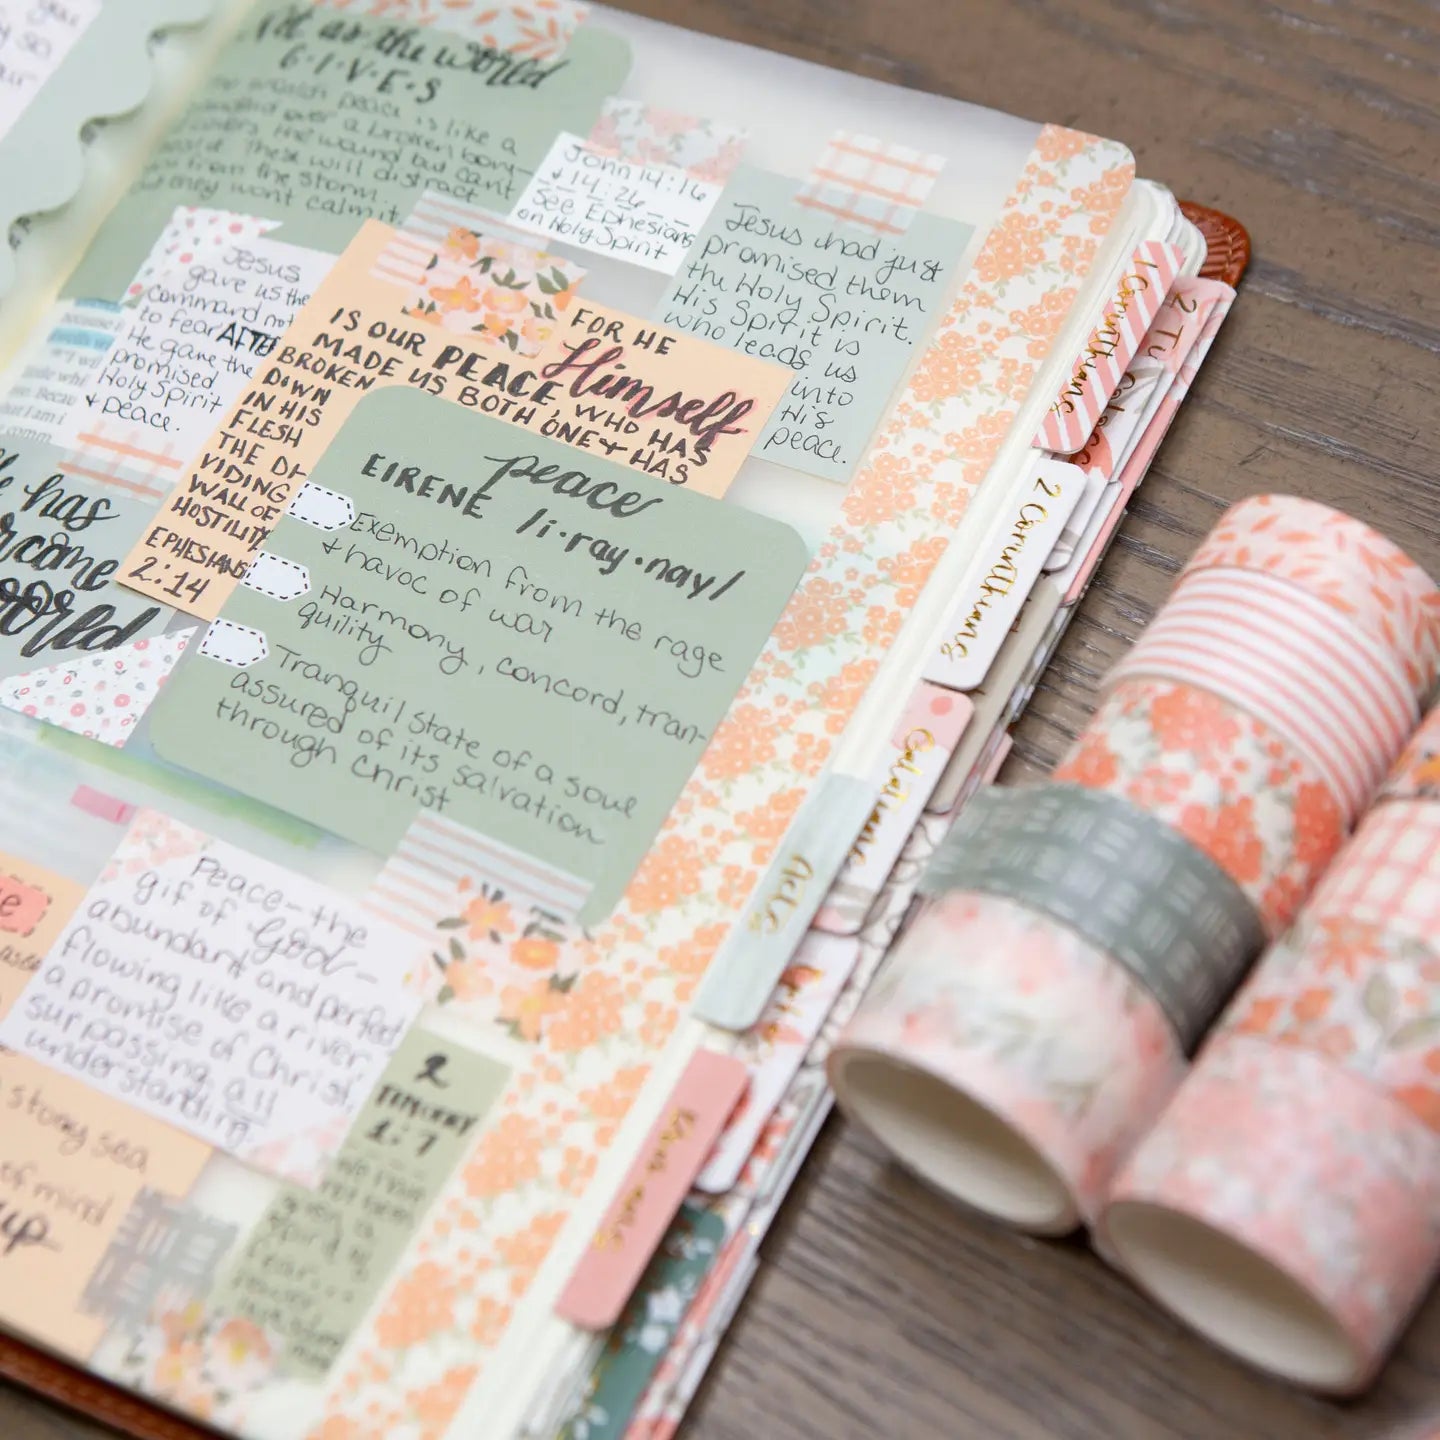 as the world
G·I·V·E·S
peace is like a
over a broken bone
the wound but can't
These will distract
from the storm
but they wont calm it.
John 14:16
+ 14:26
See Ephesians
on Holy Spirit
Jesus had just
promised them
the Holy Spirit.
His Spirit is
who leads us
into
His
peace.
Jesus
gave us the
command not
to fear AFTER
He gave the
promised
Holy Spirit
+ peace.
FOR HE
Himself
IS OUR PEACE, WHO HAS
MADE US BOTH ONE + HAS
BROKEN
DOWN
IN HIS
FLESH
THE DI-
VIDING
WALL OF
HOSTILITY
EPHESIANS
2:14
has
world
peace
EIRENE /i·ray·nay/
Exemption from the rage
+ havoc of war
Harmony, concord, tran-
quility
Tranquil state of a soul
assured of its salvation
through Christ
Peace - the
gif of God -
abundant and perfect
flowing like a river,
a promtise of Christ,
surpassing all
understanding.
stormy sea
of mind
2
TIMOTHY
1:7
1 Corinthians
2 Corinthians
Galatians
Acts
Romans